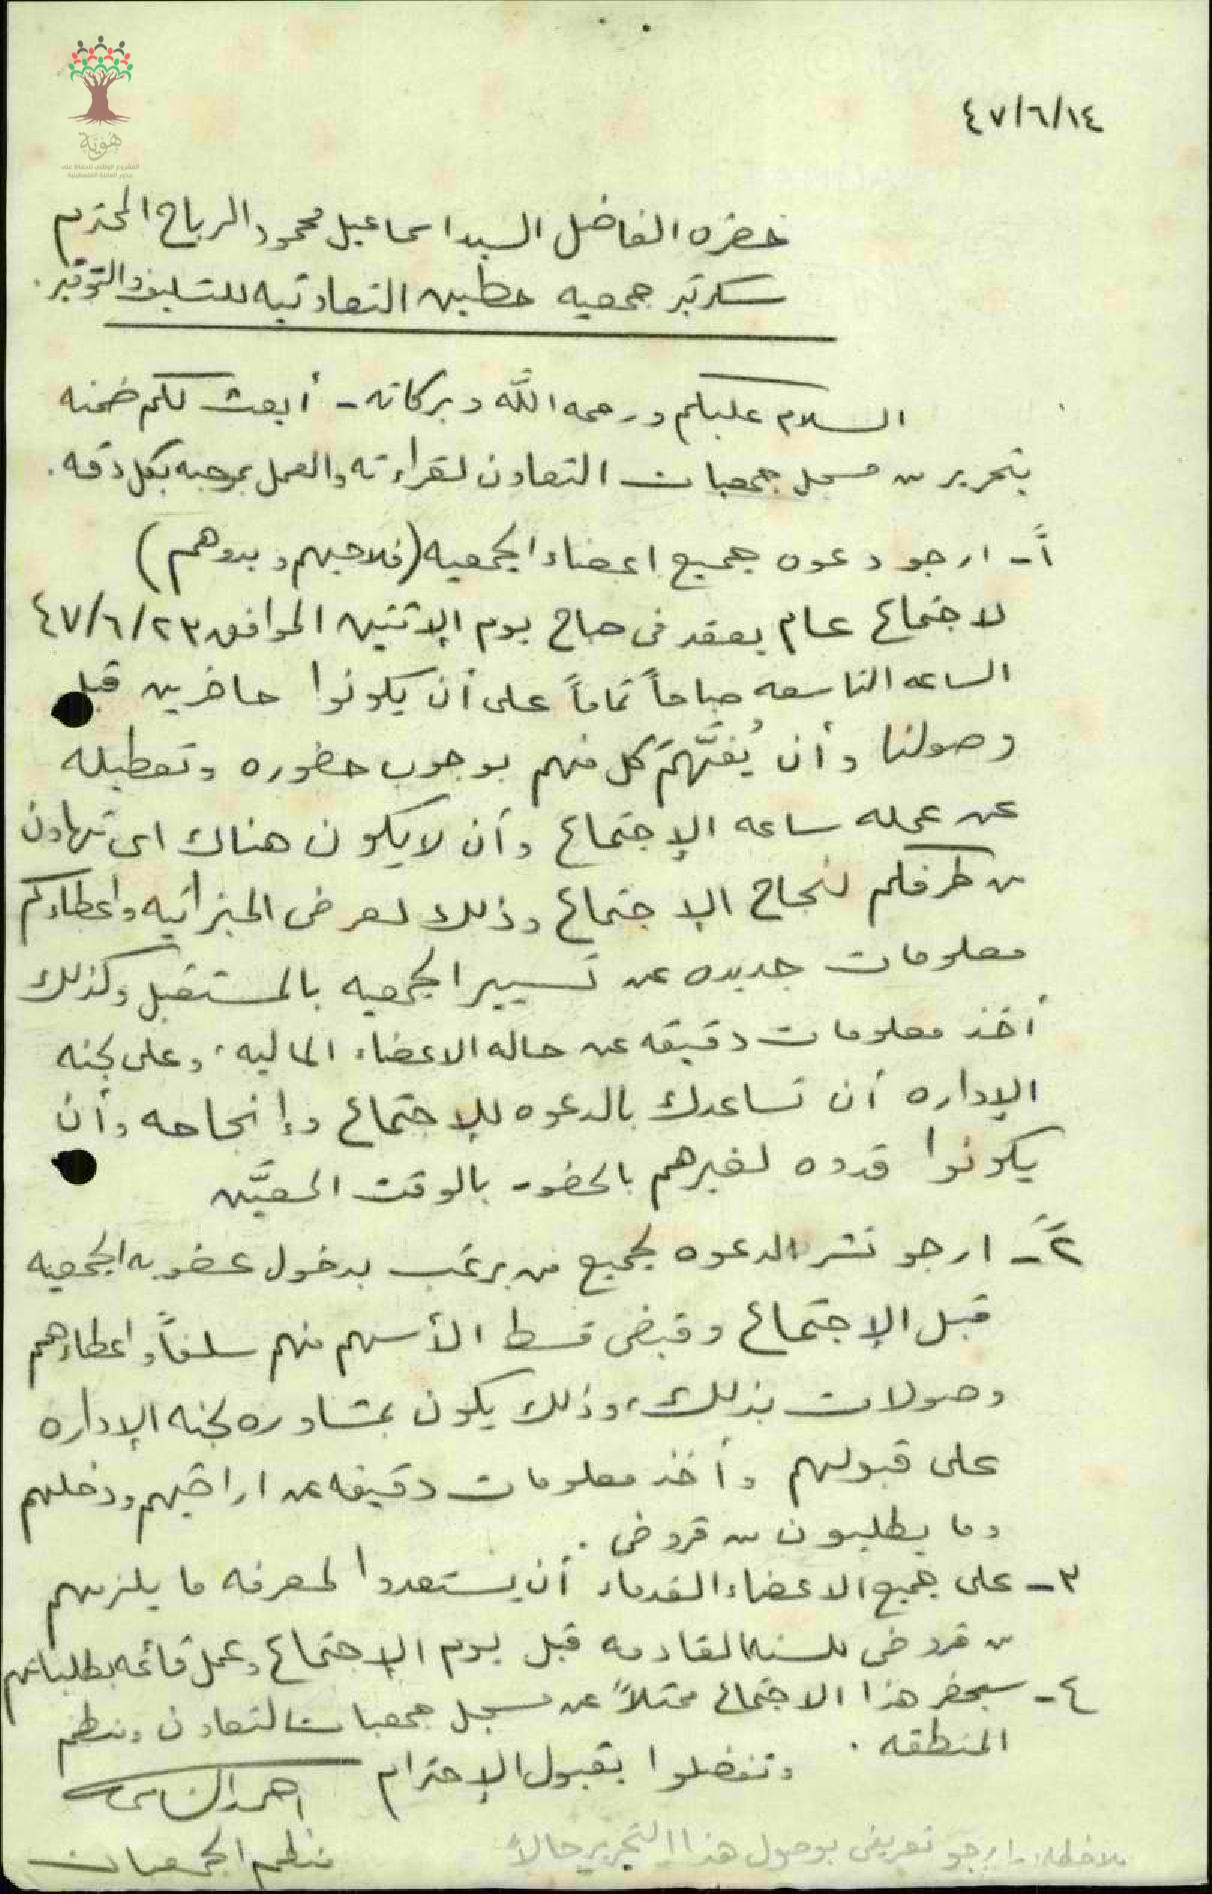 هوية
المشروع الوطني للحفاظ على
جذور العائلة الفلسطينية
٤٧/٦/١٤
حضره الفاضل السيد اسماعيل محمود الرباح المحترم
سكرتير جمعيه حطين التعاونيه للتسليف والتوفير.
السلام عليكم ورحمه اللّه وبركاته - أبعث لكم ضمنه
بتحرير من مسجل جمعيات التعاون لقراءته والعمل بموجبه بكل دقه.
١ً- ارجو دعوه جميع اعضاء الجمعيه (فلاحيهم وبدوهم)
لاجتماع عام يعقد في صباح يوم الإثنين الموافق ٤٧/٦/٢٣
الساعه التاسعه صباحاً تماماً على أن يكونوا حاضرين قبل
وصولنا وأن يُفَهَّم كل منهم بوجوب حضوره وتعطيله
عن عمله ساعه الإجتماع وأن لا يكون هناك اى تهاون
من طرفكم لنجاح الإجتماع وذلك لعرض الميزانيه واعطاءكم
معلومات جديده عن تسيير الجمعيه بالمستقبل وكذلك
أخذ معلومات دقيقه عن حاله الاعضاء الماليه، وعلى لجنه
الإداره أن تساعدك بالدعوه للإجتماع وإنجاحه وأن
يكونوا قدوه لغيرهم بالحضور بالوقت المعيَّن
٢ً- ارجو نشر الدعوه لجميع من يرغب بدخول عضويه الجمعيه
قبل الإجتماع وقبض قسط الأسهم منهم سلفاً واعطاءهم
وصولات بذلك، وذلك يكون بمشاوره لجنه الإداره
على قبولهم وأخذ معلومات دقيقه عن اراضيهم ودخلهم
وما يطلبون من قروض.
٣- على جميع الاعضاء القدماء أن يستعدوا لمعرفه ما يلزمهم
من قروض للسنه القادمه قبل يوم الإجتماع وعمل قائمه بطلباتهم
٤- سيحضر هذا الاجتماع ممثلاً عن مسجل جمعيات التعاون ومنظم
المنطقه.
وتفضلوا بقبول الإحترام
احمد
منظم الجمعيات
ملاحظه: ارجو تعريفى بوصول هذا التحرير حالاً